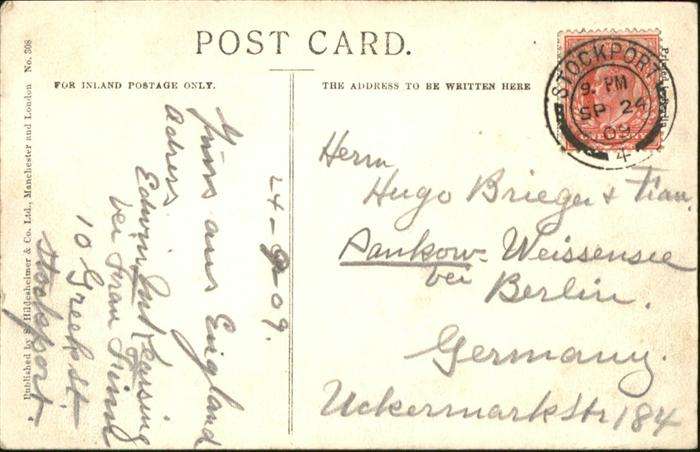 POST CARD.
FOR INLAND POSTAGE ONLY.
THE ADDRESS TO BE WRITTEN HERE
Published by S. Hildesheimer & Co. Ltd., Manchester and London No. 308
STOCKPORT
9. PM
SP 24
09
4
24-9-09.
aus England
Adress
Edwin
bei Frau
10 Greek St.
Stockport.
Herrn
Hugo Brieger & Frau.
Pankow-Weissensee
bei
Berlin.
Germany.
Uckermarkstr 184